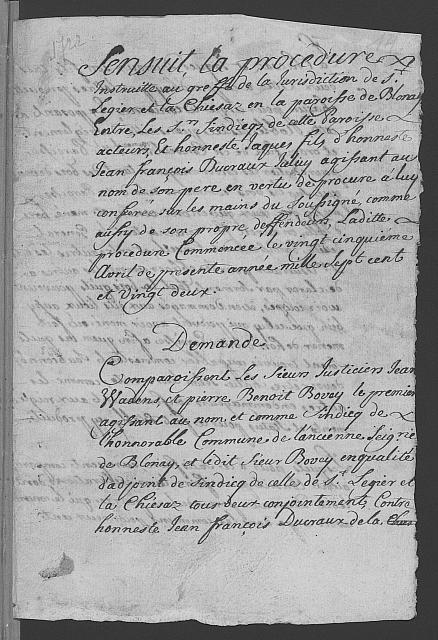 1722
Sensuit, la procedure
Instruitte au greffe de la Jurisdiction de s.t
Legier et la Chiesaz en la paroisse de Blonay
Entre, Les S.rs Sindiqs de ditte Paroisse
acteurs, Et honneste Jaques fils d'honneste
Jean François Ducraux agissant au
nom de son pere en vertu de procure a luy
conferée sur les mains du Soussigné, comme
aussy de son propre, deffendeurs, Laditte
procedure Commencée le vingt cinquiéme
Avril de presente année mille sept cent
et vingt deux:
Demande
Comparoissent Les Sieurs Justiciers Jean
et pierre Benoit Bovey le premier
agissant au nom, et comme Sindiq de
l'honnorable Commune de lancienne Seigrie
de Blonay, et ledit Sieur Bovey en qualité
d'adjoint de Sindiq de celle de s.t Legier et
la Chiesaz tous deux conjointement, Contre
honneste Jean François Ducraux de la